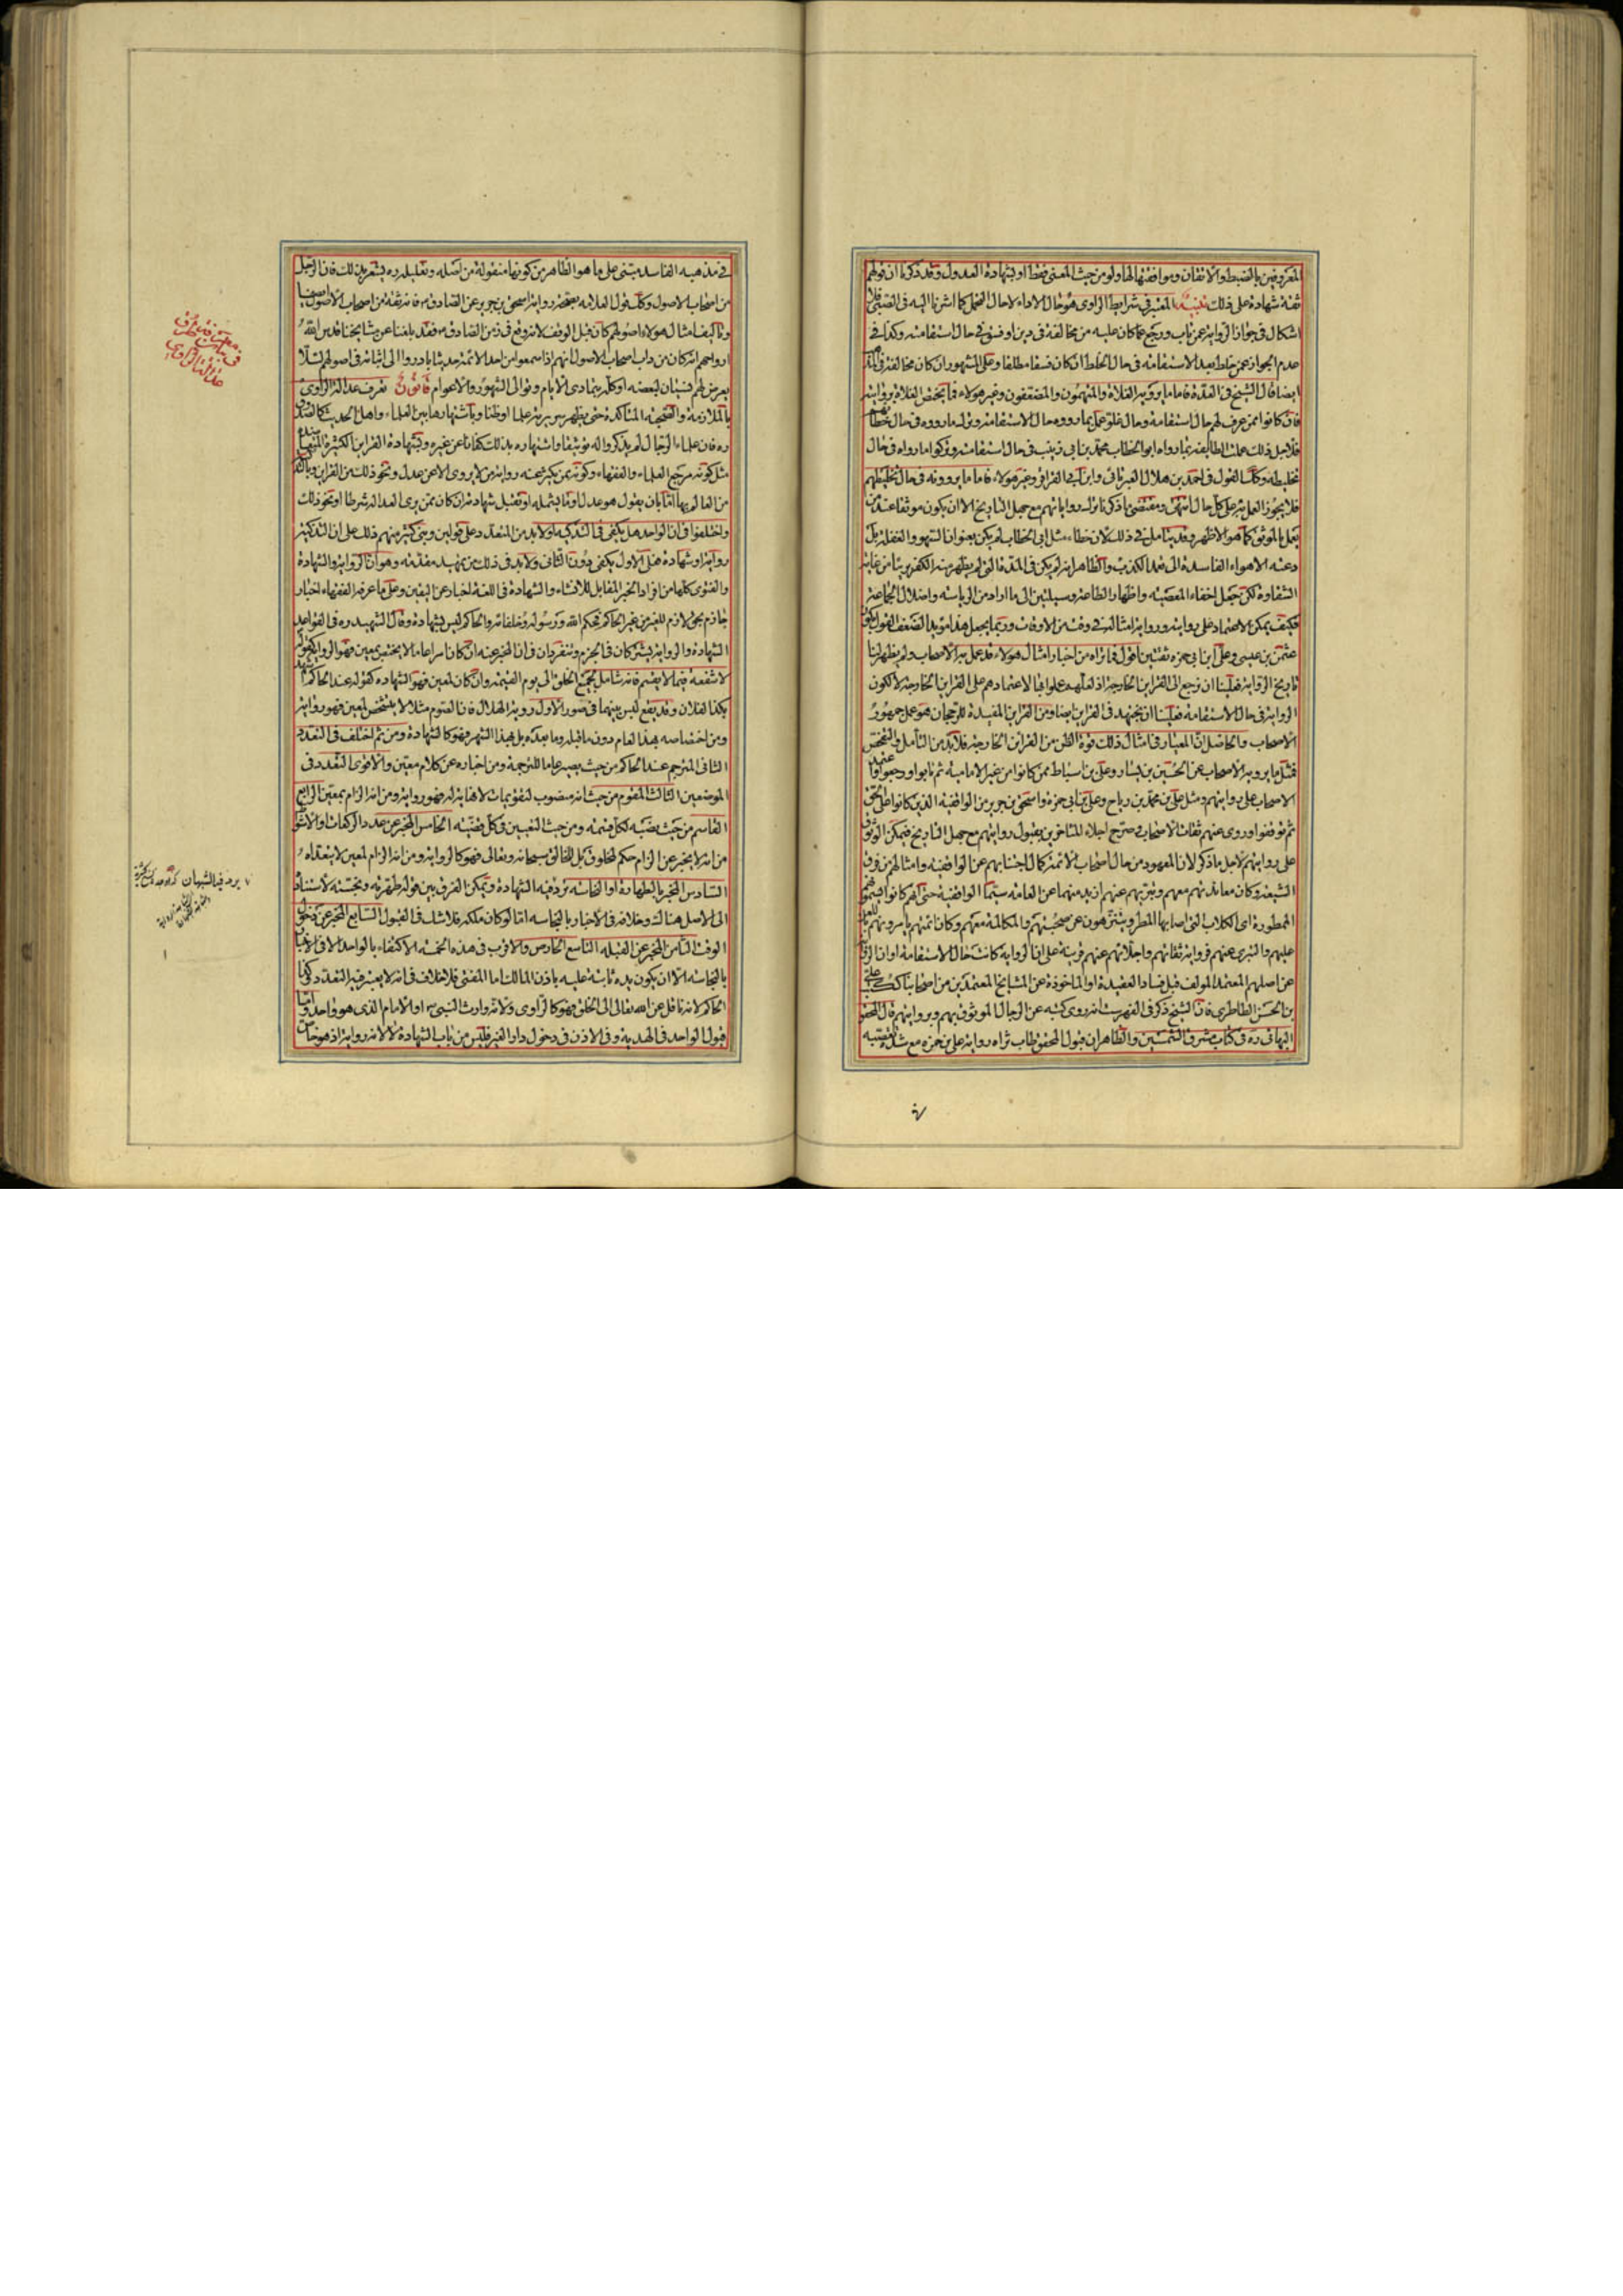 المعروفين بالضبط والاتقان وموافقتها لها ولو من حيث المعنى فقط او بشهادة العدول وقد ذكرنا ان قولهم
ثقة شهادة على ذلك تنبيه المعتبر في شرايط الراوي هو حال الاداء لا حال التحمل كما اشرنا اليه في الصبي فلا
اشكال في جواز الرواية عمن تاب ورجع عما كان عليه من مخالفة في دين او فسق في حال استقامته وكذا في
عدم الجواز عمن خلط بعد الاستقامة في حال الخلط ان كان فسقا مطلقا وعلى المشهور ان كان مخالفة في
ايضا قال الشيخ في العدة فاما ما يرويه الغلاة والمتهمون والمضعفون وغير هؤلاء فما يختص الغلاة بروايته
فان كانوا ممن عرف لهم حال استقامة وحال غلو عمل بما رووه حال الاستقامة وترك ما رووه في حال خطائهم
فلاجل ذلك عملت الطايفة بما رواه ابو الخطاب محمد بن ابي زينب في حال استقامته وتركوا ما رواه في حال
تخليطه وكذا القول في احمد بن هلال العبرتائي وابن ابي العزاقر وغير هؤلاء فاما ما يروونه في حال تخليطهم
فلا يجوز العمل به على كل حال انتهى ومقتضى ما ذكرنا ترك رواياتهم مع جهل التاريخ الا ان يكون موثقا عند من
يعمل بالموثق كما هو الاظهر وقد يتامل في ذلك لان خطاء مثل ابي الخطاب لم يكن بعنوان السهو والغفلة بل
دعته الاهواء الفاسدة الى تعمد الكذب والظاهر انه لم يكن في المدة التي لم يظهر منه الكفر بريئا من غاية
الشقاوة لكن جعل اخفاء المعصية واظهار الطاعة وسيلتين الى ما اراد من الرياسة واضلال الجماعة
فكيف يمكن الاعتماد على روايته ورواية امثاله في وقت من الاوقات وربما يجعل هذا مؤيدا لضعف القول بكون
عثمن بن عيسى وعلي بن ابي حمزه ثقتين اقول فما نراه من اخبار امثال هؤلاء قد عمل به الاصحاب ولم يظهر لنا
تاريخ الرواية فعلينا ان نرجع الى القراين الخارجة اذ لعلهم عملوا بها لاعتمادهم على القراين الخارجة لا لكون
الرواية في حال الاستقامة فعلينا ان نجتهد في القراين ايضا ومن القراين المفيدة للرجحان هو عمل جمهور
الاصحاب والحاصل ان المعيار في امثال ذلك قوة الظن من القراين الخارجة فلا بد من التامل والتفحص
فمثل ما يرويه الاصحاب عن الحسين بن بشار وعلي بن اسباط ممن كانوا من غير الامامية ثم تابوا ورجعوا واعتمد
الاصحاب على روايتهم ومثل علي بن محمد بن رياح وعلي بن ابي حمزة واسحق بن جرير من الواقفية الذين كانوا على الحق
ثم توقفوا وروى عنهم ثقات الاصحاب صرح اجلاء المتاخرين بقبول روايتهم مع جهل التاريخ فيمكن الوثوق
على روايتهم لاجل ما ذكر لان المعهود من حال اصحاب الائمة كمال اجتنابهم عن الواقفية وامثالهم من فرق
الشيعة وكان معاندتهم معهم وتبريهم عنهم ازيد منهما عن العامة سيما الواقفية حتى انهم كانوا يسمونهم
الممطورة اي الكلاب التي اصابها المطر ويتنزهون عن صحبتهم والمكالمة معهم وكان ائمتهم يامرونهم باللعن
عليهم والتبري عنهم فرواية ثقاتهم واجلائهم عنهم قرينة على ان الرواية كانت حال الاستقامة او ان الرواية
عن اصلهم المعتمد المولف قبل فساد العقيدة او الماخوذة عن المشايخ المعتمدين من اصحابنا ككتب علي
بن الحسن الطاطري فان الشيخ ذكر في الفهرست انه روى كتبه عن الرجال الموثوق بهم وبروايتهم قال المحقق
البهائي ره في كتاب مشرق الشمسين والظاهر ان قبول المحقق طاب ثراه رواية علي بن حمزه مع شدة تعصبه
في مذهبه الفاسد مبتنى على ما هو الظاهر من كونها منقولة من اصله وتعليله ره يشعر بذلك فان الرجل
من اصحاب الاصول وكذا قول العلامه بصحة رواية اسحق بن جرير عن الصادق ع فانه ثقة من اصحاب الاصول ايضا
وتاليف امثال هؤلاء اصولهم كان قبل الوقف لانه وقع في زمن الصادق ع فقد بلغنا عن مشايخنا قدس الله
ارواحهم انه كان من داب اصحاب الاصول انهم اذا سمعوا من احد الائمة حديثا بادروا الى اثباته في اصولهم لئلا
يعرض لهم نسيان لبعضه او كله بتمادي الايام وتوالي الشهور والاعوام قانون تعرف عدالة الراوي
بالملازمة والصحبة المتاكدة حتى يظهر سريرته علما او ظنا وباشتهارها بين العلماء واهل الحديث كالصدوق
ره فان علماء الرجال لم يذكروا له توثيقا واشتهاره بذلك كفانا عن غيره وبشهادة القراين الكثيرة المتعاضدة
مثل كونه مرجع العلماء والفقهاء وكونه ممن يكثر عنه رواية من لا يروي الا عن عدل ونحو ذلك من القراين وبالتزكية
من العالم بها اما بان يقول هو عدل او ما يشمله او تقبل شهادته ان كان ممن يرى العدالة شرطا او نحو ذلك
واختلفوا في ان الواحد هل يكفي في التزكية او لا بد من التعدد على قولين وبنى كثير منهم ذلك على ان التزكية
رواية او شهادة فعلى الاول يكفي دون الثاني ولا بد في ذلك من تمهيد مقدمة وهو ان الرواية والشهادة
والفتوى كلها من افراد الخبر المقابل للانشاء والشهادة في اللغة اخبار عن اليقين وعلى ما عرفه الفقهاء اخبار
جازم بحق لازم للغير من غير الحاكم فحكم الله ورسوله وخلفائه والحاكم ليس بشهادة وقال الشهيد ره في القواعد
الشهادة والرواية يشتركان في الجزم وينفردان في ان المخبر عنه ان كان امرا عاما لا يختص بمعين فهو الرواية كقوله
لا شفعة فيما لا يقسم فانه شامل لجميع الخلق الى يوم القيمة وان كان لمعين فهو الشهادة كقوله عند الحاكم اشهد
بكذا لفلان وقد يقع لبس بينهما في صور الاول روية الهلال فان الصوم مثلا لا يتشخص لمعين فهو رواية
ومن اختصاصه بهذا العام دون ما قبله وما بعده بل بهذا الشهر فهو كالشهادة ومن ثم اختلف في التعدد
الثاني المترجم عند الحاكم من حيث يصير عاما للترجمة ومن اخباره عن كلام معين والاقوى التعدد في
الموضعين الثالث المقوم من حيث انه منصوب لتقويمات لا نهاية لها فهو رواية ومن انه الزام بمعين الرابع
القاسم من حيث نصبه لكل قسمة ومن حيث التعيين في كل قضية الخامس المخبر عن عدد الركعات والاشواط
من انه لا يخبر عن الزام حكم لمخلوق بل للخالق سبحانه وتعالى فهو كالرواية ومن انه الزام لمعين لا يتعداه
السادس المخبر بالطهارة او النجاسة تردفيه الشهادة ويمكن الفرق بين قوله طهرته ونجسته لاستناده
الى الاصل هناك وخلافه في الاخبار بالنجاسة اما لو كان ملكه فلا شك في القبول السابع المخبر عن دخول
الوقت الثامن المخبر عن القبلة التاسع الخارص والاقرب في هذه الخمسة الاكتفاء بالواحد الا في الاخبار
بالنجاسة الا ان يكون يده ثابتة عليه باذن المالك اما المفتي فلا خلاف في انه لا يعتبر فيه التعدد وكذا
الحاكم لانه ناقل عن الله تعالى الى الخلق فهو كالراوي ولانه وارث النبي ص او الامام الذي هو واحد واما
قبول الواحد في الهدية وفي الاذن في دخول دار الغير فليس من باب الشهادة لا لانه رواية اذ هو خاص